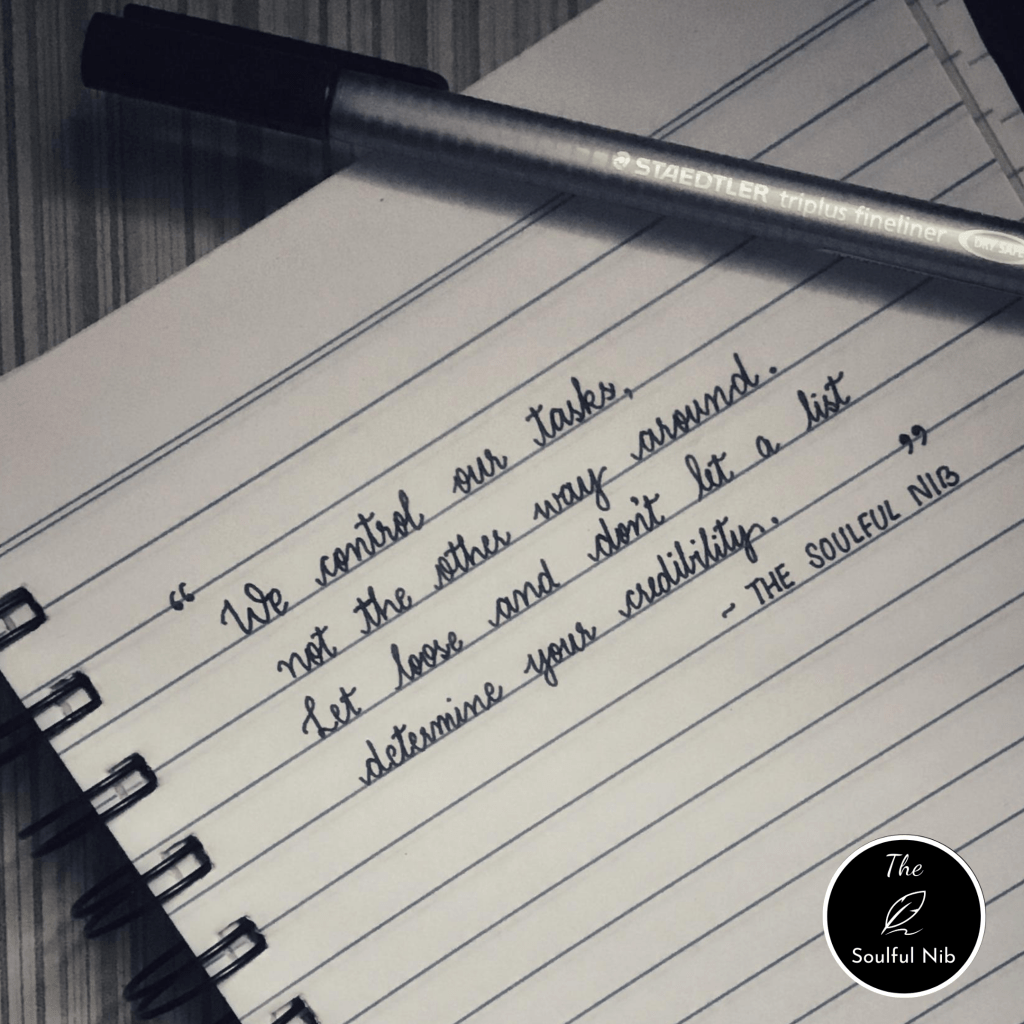 STAEDTLER triplus fineliner DRY SAFE
“ We control our tasks,
not the other way around.
Let loose and don't let a list
determine your credibility. ”
~ THE SOULFUL NIB
The
Soulful Nib